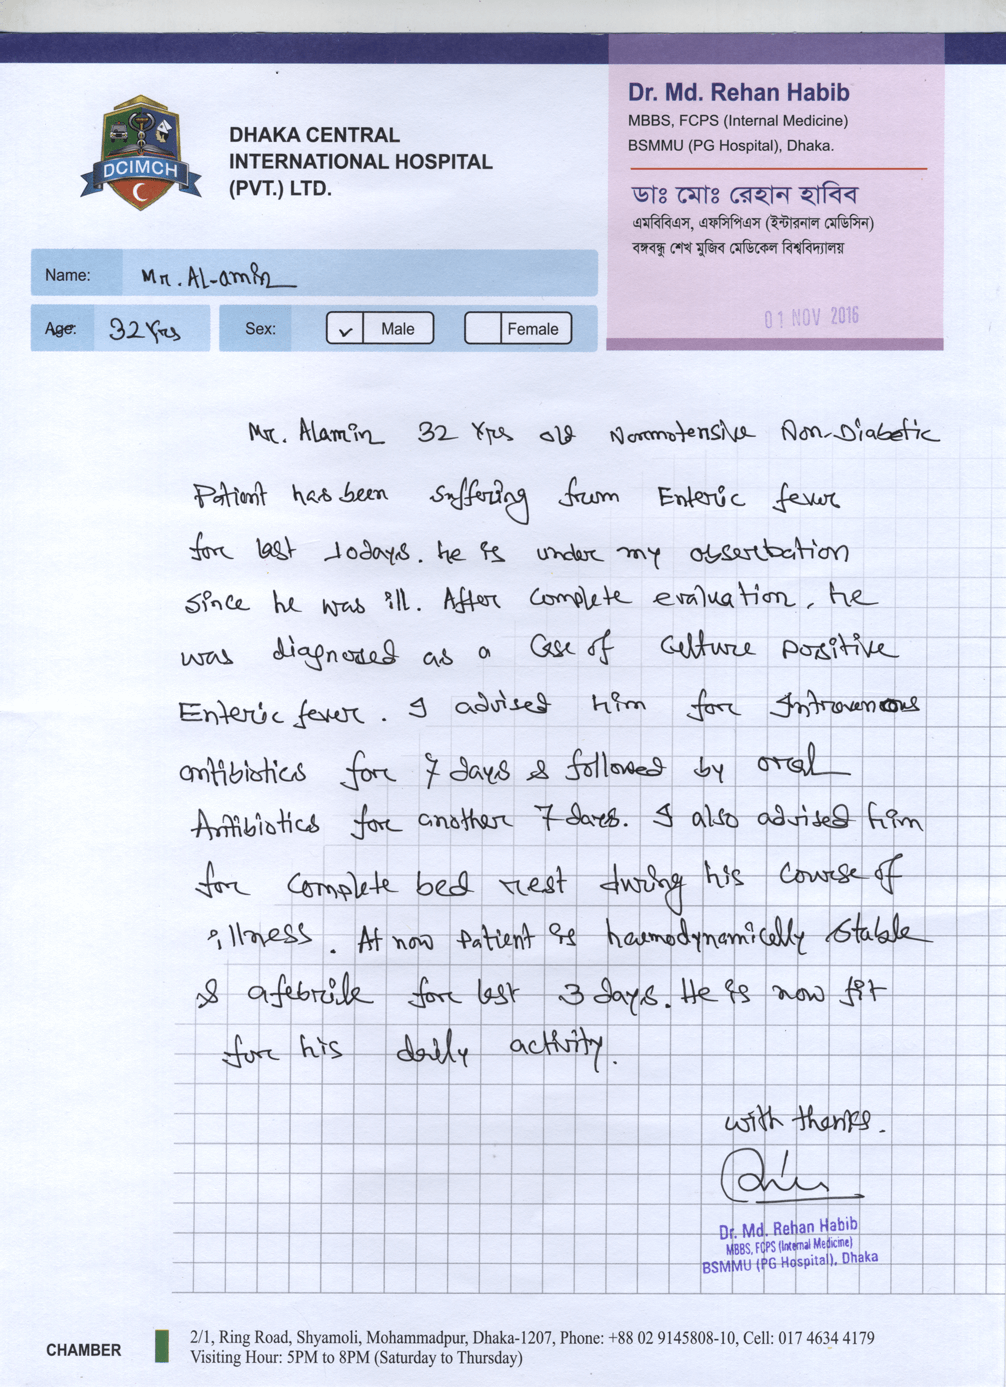 DCIMCH
DHAKA CENTRAL
INTERNATIONAL HOSPITAL
(PVT.) LTD.
Dr. Md. Rehan Habib
MBBS, FCPS (Internal Medicine)
BSMMU (PG Hospital), Dhaka.
ডাঃ মোঃ রেহান হাবিব
এমবিবিএস, এফসিপিএস (ইন্টারনাল মেডিসিন)
বঙ্গবন্ধু শেখ মুজিব মেডিকেল বিশ্ববিদ্যালয়
01 NOV 2016
Name: Mr. AL-amin
Age: 32 Yrs Sex: ✓ Male Female
Mr. Alamin 32 Yrs old Normotensive Non-Diabetic
Patient has been suffering from Enteric fever
for last 10days. he is under my obserbation
since he was ill. After complete evaluation, he
was diagnosed as a Case of Culture positive
Enteric fever. I advised him for Intravenous
antibiotics for 7 days & followed by oral
Antibiotics for another 7 days. I also advised him
for complete bed rest during his course of
illness. At now patient is haemodynamically stable
& afebrile for last 3 days. He is now fit
for his daily activity.
with thanks.
Dr. Md. Rehan Habib
MBBS, FCPS (Internal Medicine)
BSMMU (PG Hospital), Dhaka
CHAMBER
2/1, Ring Road, Shyamoli, Mohammadpur, Dhaka-1207, Phone: +88 02 9145808-10, Cell: 017 4634 4179
Visiting Hour: 5PM to 8PM (Saturday to Thursday)